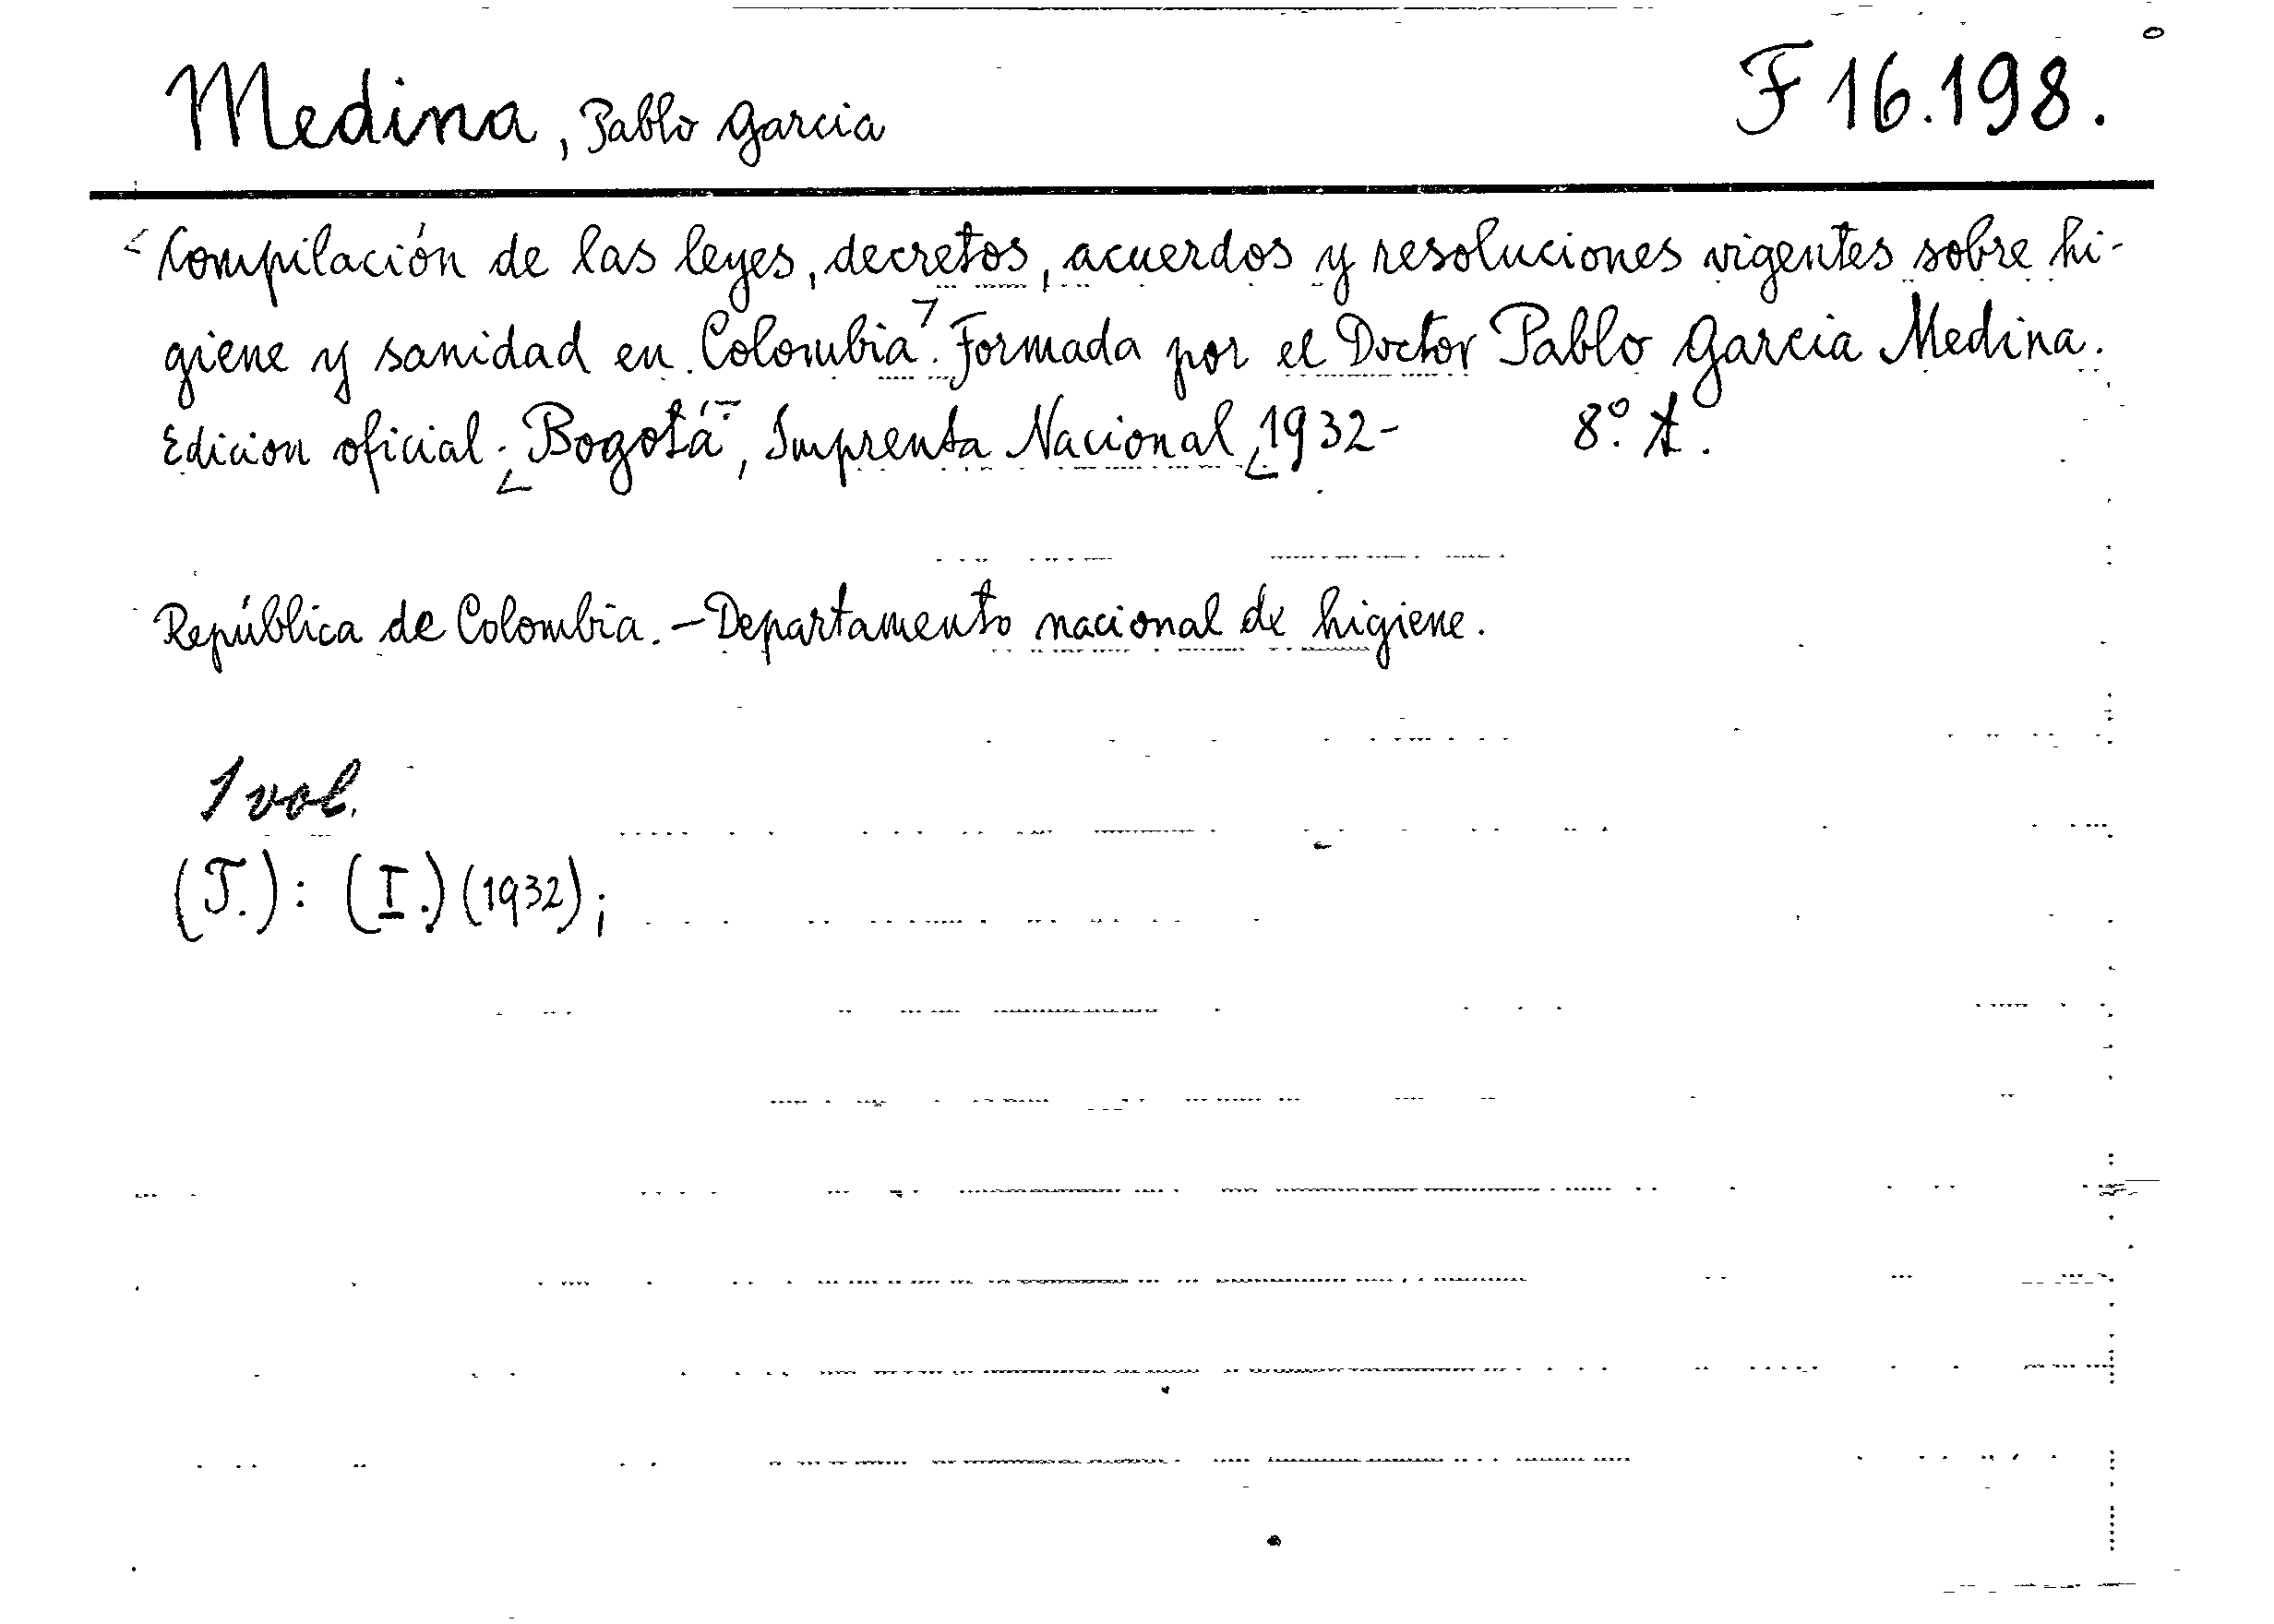 Medina, Pablo Garcia
F 16.198.
Compilación de las leyes, decretos, acuerdos y resoluciones vigentes sobre hi-
giene y sanidad en Colombia. Formada por el Doctor Pablo Garcia Medina.
Edicion oficial. Bogotá, Imprenta Nacional, 1932- 8º.
República de Colombia. - Departamento nacional de higiene.
1 vol.
(T.): (I.) (1932);